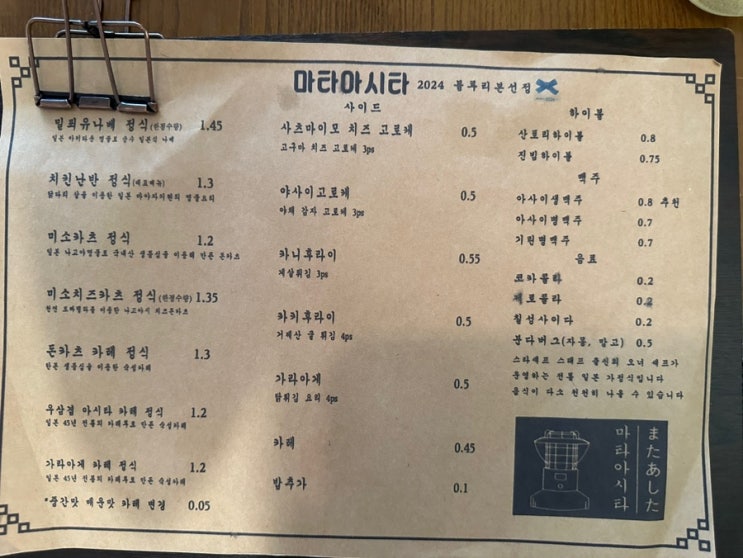 마타아시타 2024 블루리본선정
밀푀유나베 정식(한정수량) 1.45
치킨난반 정식(대표메뉴) 1.3
닭다리 살을 이용한 일본 미야자키현의 명물요리
미소카츠 정식 1.2
일본 나고야명물로 국내산 생등심을 이용해 만든 돈카츠
미소치즈카츠 정식(한정수량) 1.35
돈카츠 카레 정식 1.3
한돈 생등심을 이용한 숙성카레
우삼겹 아시타 카레 정식 1.2
일본 45년 전통의 카레루로 만든 숙성카레
가라아게 카레 정식 1.2
일본 45년 전통의 카레루로 만든 숙성카레
*중간맛 매운맛 카레 변경 0.05
사이드
사츠마이모 치즈 고로케 0.5
고구마 치즈 고로케 3ps
야사이고로케 0.5
야채 감자 고로케 3ps
카니후라이 0.55
게살튀김 3ps
카키후라이 0.5
거제산 굴 튀김 4ps
가라아게 0.5
닭튀김 요리 4ps
카레 0.45
밥추가 0.1
하이볼
산토리하이볼 0.8
진빔하이볼 0.75
맥주
아사이생맥주 0.8 추천
아사이병맥주 0.7
기린병맥주 0.7
음료
코카콜라 0.2
제로콜라 0.2
칠성사이다 0.2
분다버그(자몽, 망고) 0.5
스타셰프 스태프 출신의 오너 셰프가
운영하는 전통 일본 가정식입니다
음식이 다소 천천히 나올 수 있습니다
またあした
마타아시타